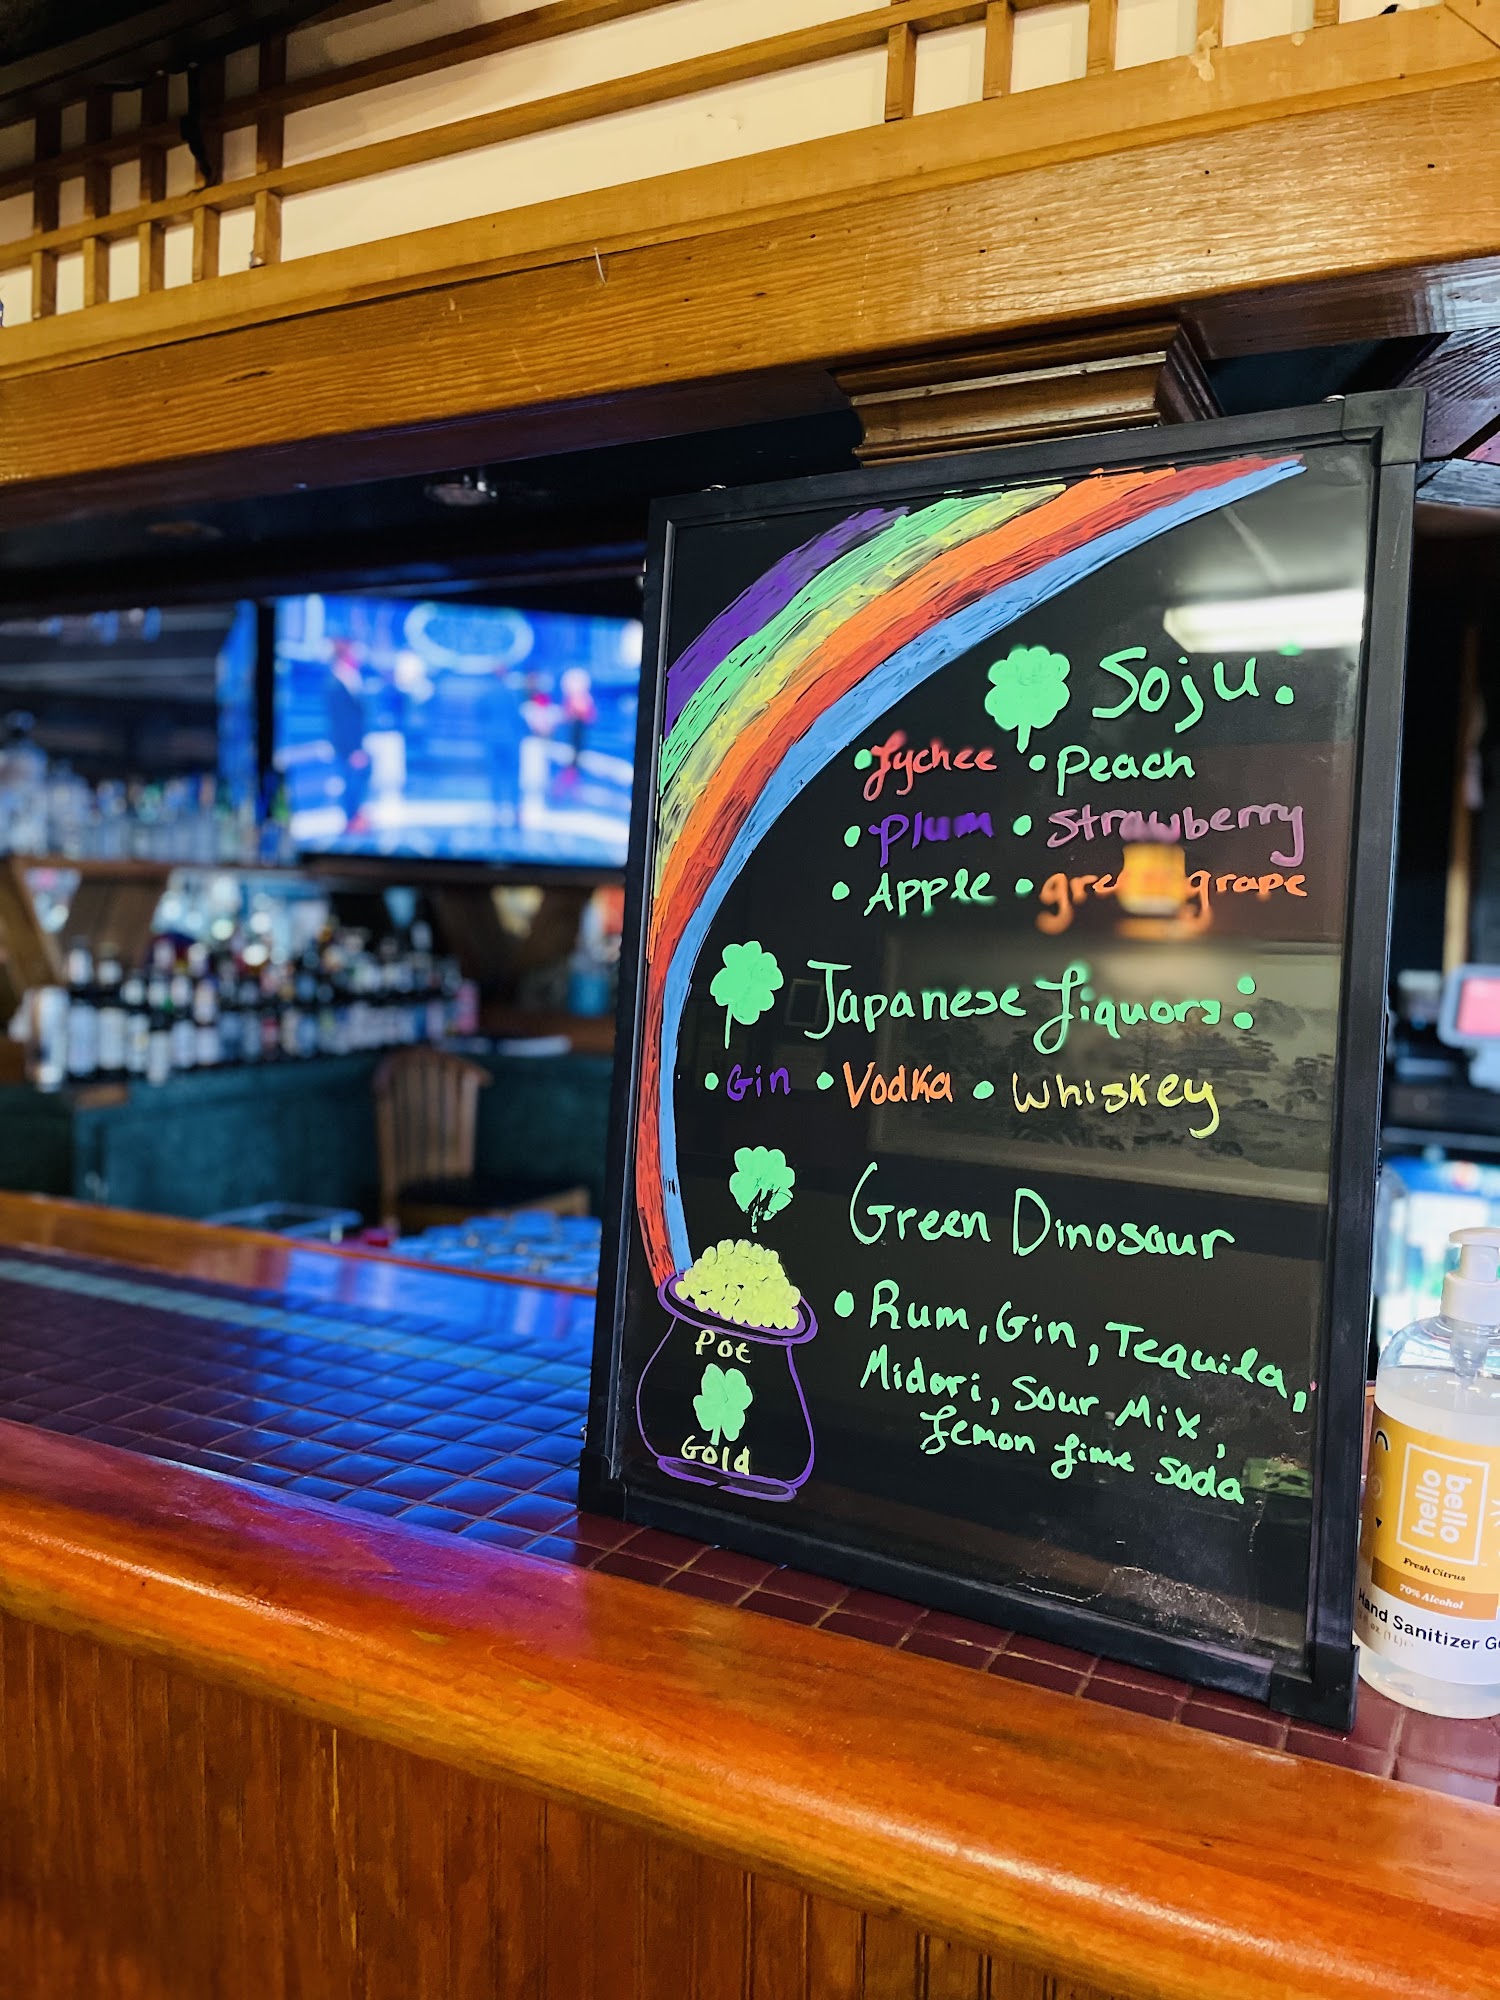 Soju.
• Lychee • Peach
• Plum • Strawberry
• Apple • green grape
Japanese Liquors:
• Gin • Vodka • Whiskey
Green Dinosaur
• Rum, Gin, Tequila,
Midori, Sour Mix,
Lemon Lime Soda
Pot
Gold
hello
bello
Fresh Citrus
70% Alcohol
Hand Sanitizer